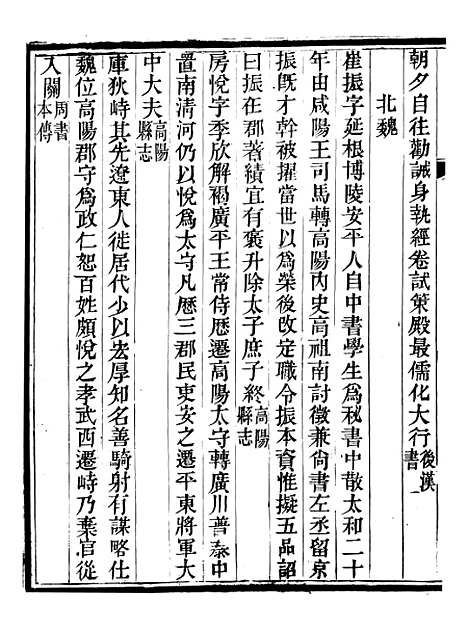 朝夕自往勸誡身執經卷試策殿最儒化大行後漢書一
北魏
崔振字延根博陵安平人自中書學生爲秘書中散太和二十
年由咸陽王司馬轉高陽內史高祖南討徵兼尙書左丞留京
振旣才幹被擢當世以爲榮後改定職令振本資惟擬五品詔
曰振在郡著績宜有襃升除太子庶子終高陽縣志
房悅字季欣解褐廣平王常侍歷遷高陽太守轉廣川普泰中
置南清河仍以悅爲太守凡歷三郡民吏安之遷平東將軍大
中大夫高陽縣志
庫狄峙其先遼東人徙居代少以去厚知名善騎射有謀略仕
魏位高陽郡守爲政仁恕百姓頗悅之孝武西遷峙乃棄官從
入關周書本傳